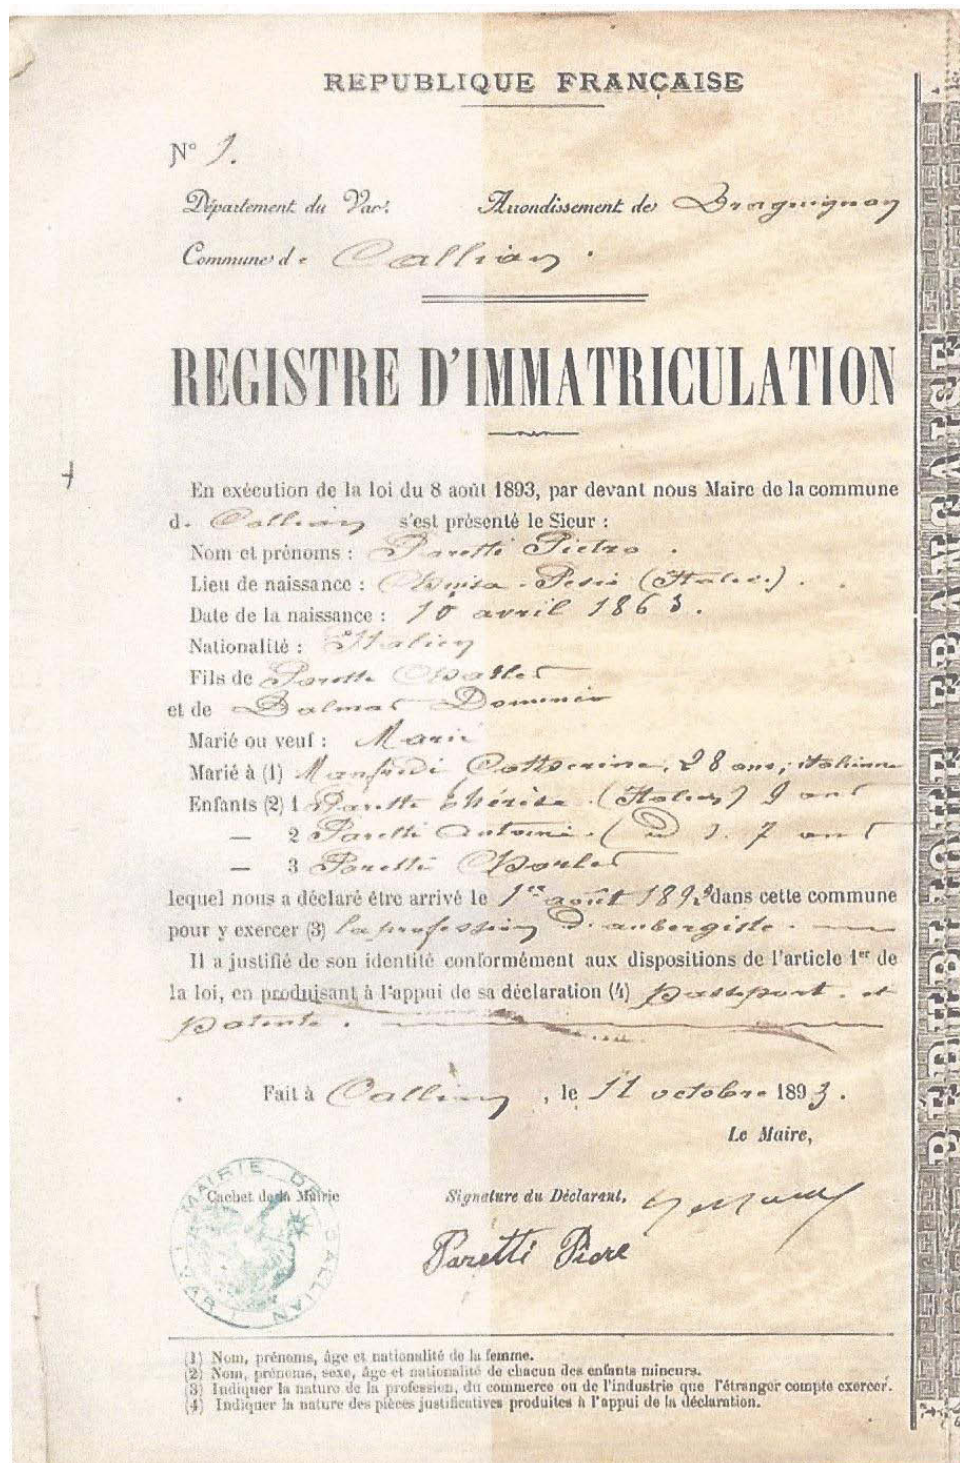 REPUBLIQUE FRANÇAISE
N° 1.
Département du Var. Arrondissement de Draguignan
Commune de Callian.
REGISTRE D'IMMATRICULATION
En exécution de la loi du 8 août 1893, par devant nous Maire de la commune
d. Callian s'est présenté le Sieur :
Nom et prénoms : Paretti Pietro.
Lieu de naissance : Chiusa-Pesio (Italie).
Date de la naissance : 10 avril 1863.
Nationalité : Italien
Fils de Paretti
et de Dalmas
Marié ou veuf : Marié
Marié à (1) Manfredi Catherine, 28 ans, italienne
Enfants (2) 1 Paretti thérèse (Italie) 9 ans
— 2 Paretti Antoine (id). 7 ans
— 3 Paretti Charles
lequel nous a déclaré être arrivé le 1er août dans cette commune
pour y exercer (3) la profession d'aubergiste.
Il a justifié de son identité conformément aux dispositions de l'article 1er de
la loi, en produisant à l'appui de sa déclaration (4) passeport. et
patente.
Fait à Callian, le 11 octobre 1893.
Le Maire,
Cachet de la Mairie Signature du Déclarant,
MAIRIE DE CALLIAN VAR
Paretti
(1) Nom, prénoms, âge et nationalité de la femme.
(2) Nom, prénoms, sexe, âge et nationalité de chacun des enfants mineurs.
(3) Indiquer la nature de la profession, du commerce ou de l'industrie que l'étranger compte exercer.
(4) Indiquer la nature des pièces justificatives produites à l'appui de la déclaration.